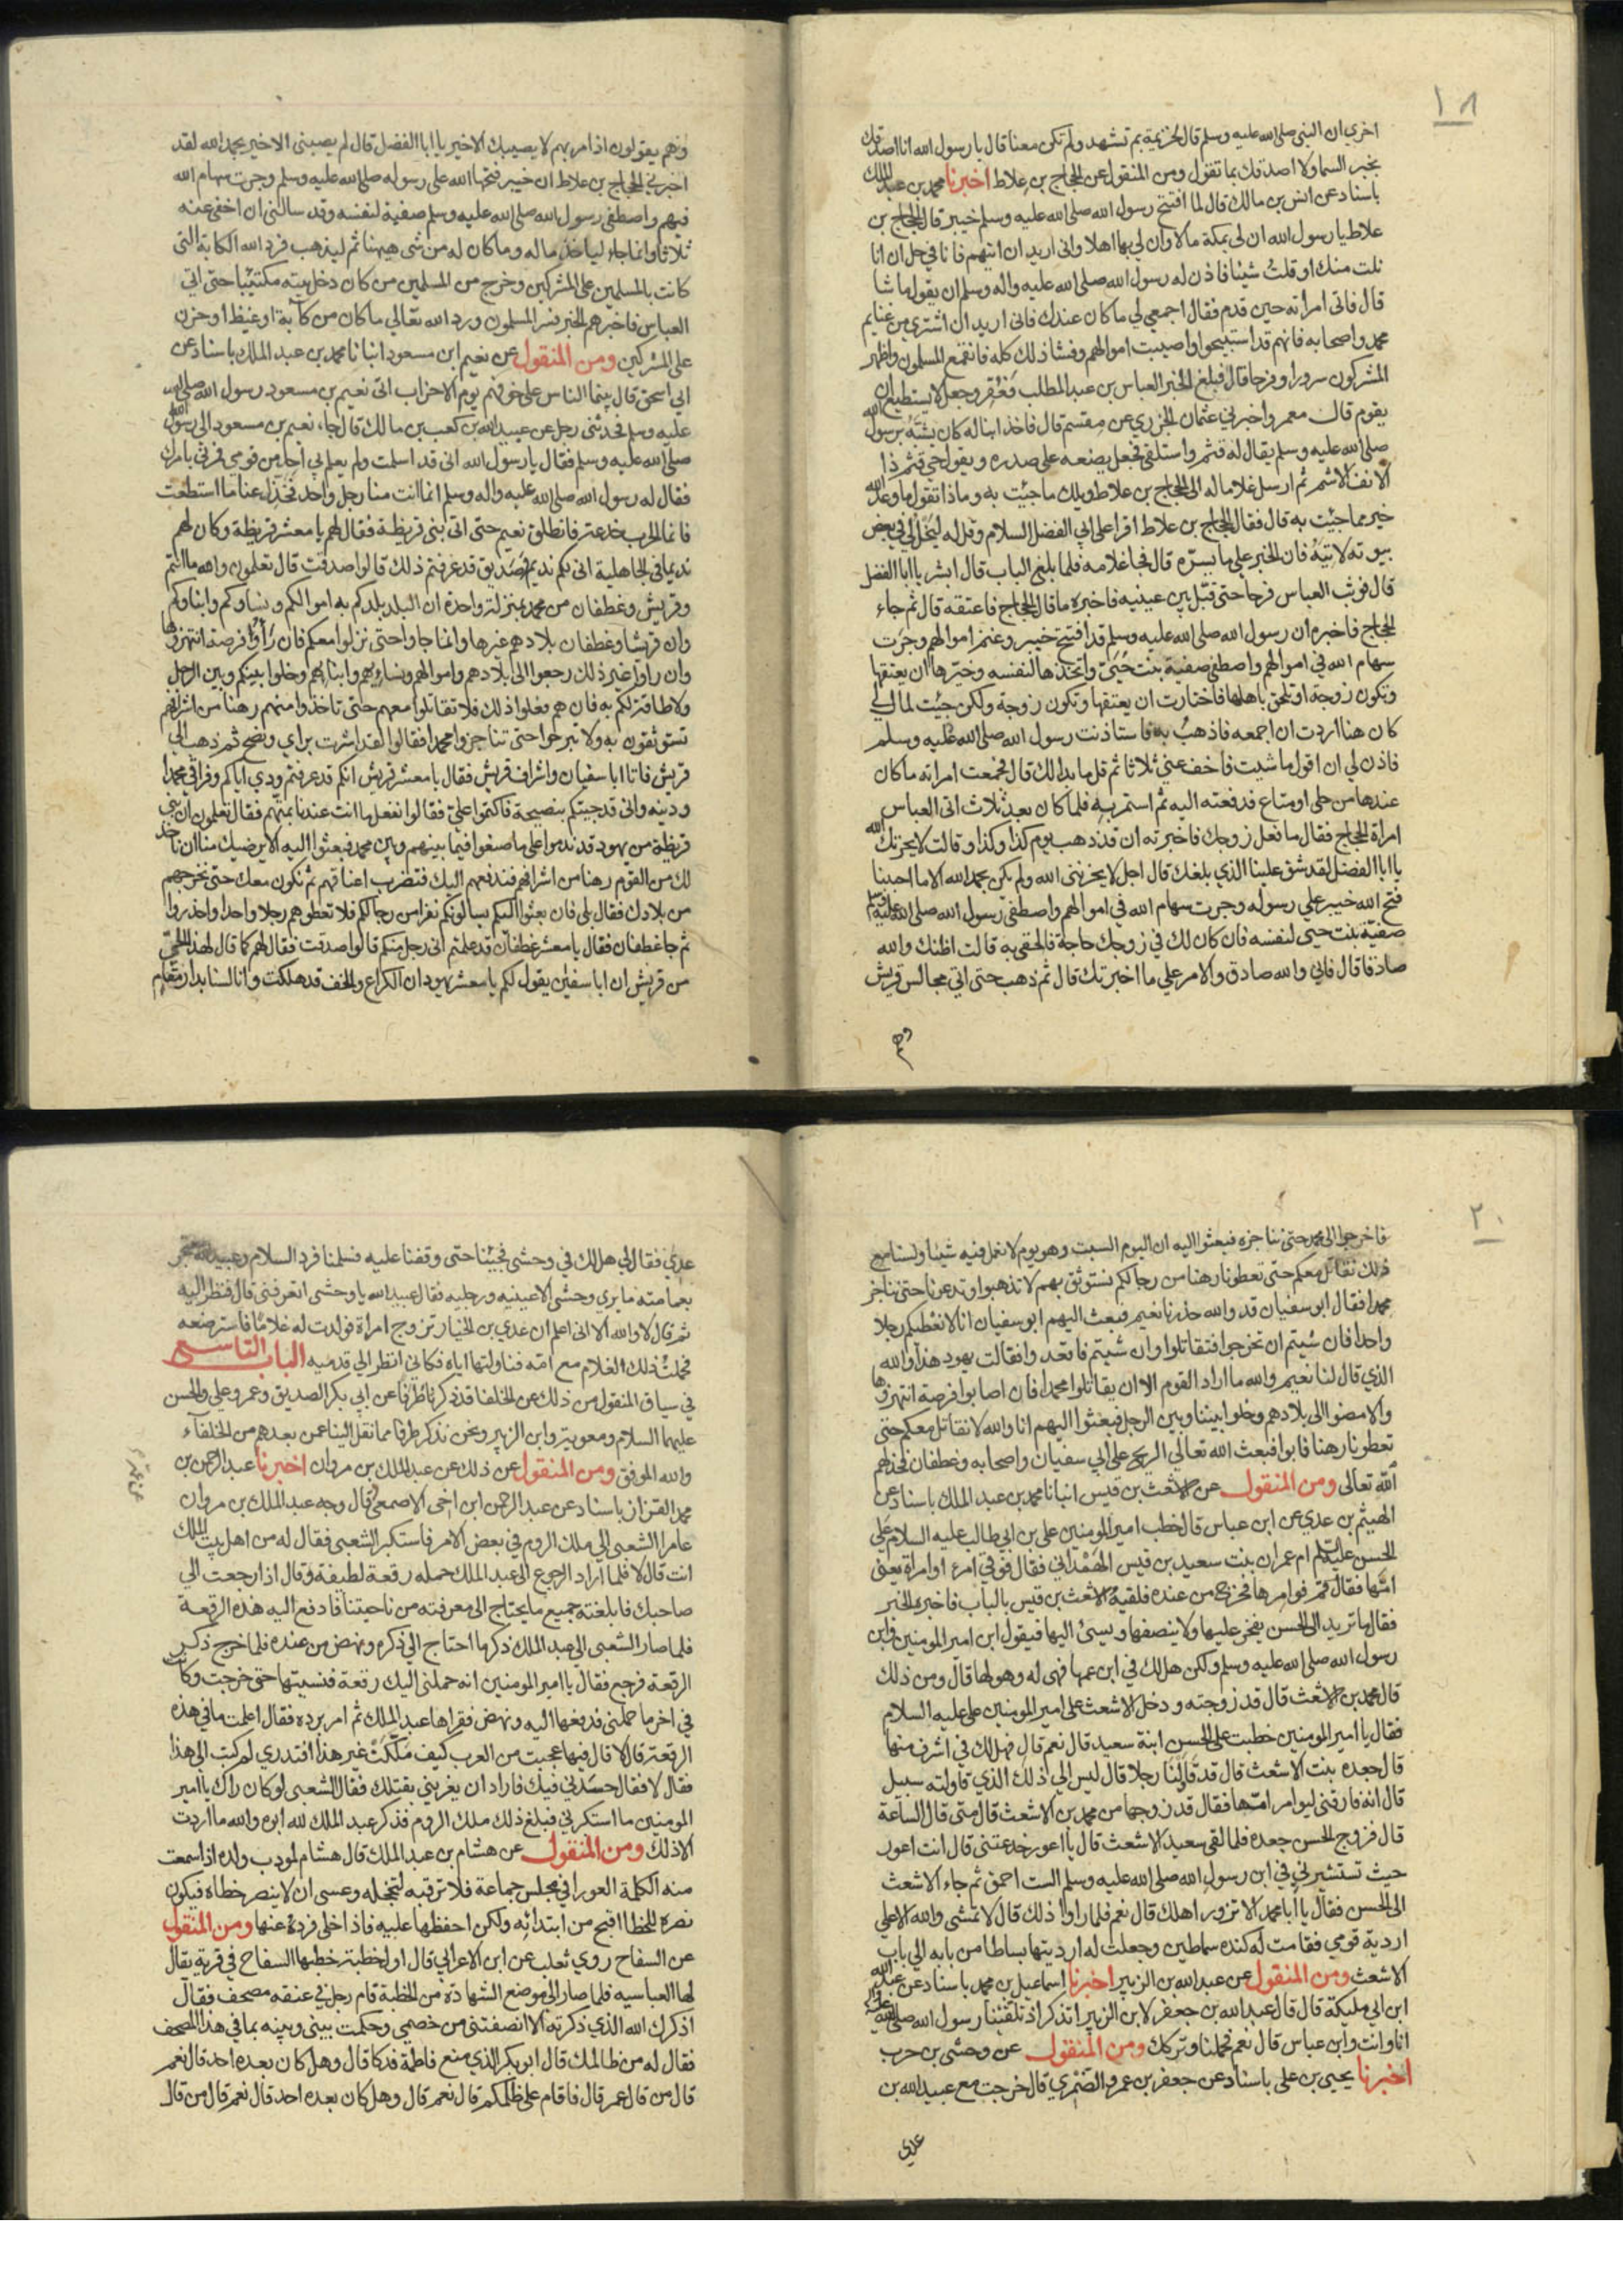 ١٨
اخري ان النبي صلى الله عليه وسلم قال لخزيمة بم تشهد ولم تكن معنا قال يا رسول الله انا اصدقك
بخبر السما ولا اصدقك بما تقول ومن المنقول عن الحجاج بن علاط اخبرنا محمد بن عبد الملك
باسناد عن انس بن مالك قال لما افتتح رسول الله صلى الله عليه وسلم خيبر قال الحجاج بن
علاط يا رسول الله ان لي بمكة مالا وان لي بها اهلا واني اريد ان اتيهم فانا في حل ان انا
نلت منك او قلت شيئا فاذن له رسول الله صلى الله عليه واله وسلم ان يقول ما شا
قال فاتى امراته حين قدم فقال اجمعي لي ما كان عندك فاني اريد ان اشتري من غنايم
محمد واصحابه فانهم قد استبيحوا واصيبت اموالهم وفشا ذلك كله فانقمع المسلمون واظهر
المشركون سرورا وفرحا قال فبلغ الخبر العباس بن عبد المطلب فعقر وجعل لا يستطيع ان
يقوم قال معمر واخبرني عثمان الجزري عن مقسم قال فاخذ ابنا له كان يشبه برسول الله
صلى الله عليه وسلم يقال له قثم واستلقى فجعل يضعه على صدره ويقول حي قثم ذا
الانف الاشم ثم ارسل غلاما له الى الحجاج بن علاط ويلك ما جيت به وماذا تقول ما وعد الله
خير مما جيت به قال فقال الحجاج بن علاط اقرا على ابي الفضل السلام وقل له ليخل لي في بعض
بيوته لاتيه فان الخبر على ما يسره قال فجا غلامه فلما بلغ الباب قال ابشر يا ابا الفضل
قال فوثب العباس فرحا حتى قبل بين عينيه فاخبره ما قال الحجاج فاعتقه قال ثم جاء
الحجاج فاخبره ان رسول الله صلى الله عليه وسلم قد افتتح خيبر وغنم اموالهم وجرت
سهام الله في اموالهم واصطفى صفية بنت حيي واتخذها لنفسه وخيرها ان يعتقها
وتكون زوجة او تلحق باهلها فاختارت ان يعتقها وتكون زوجة ولكن جيت لمال لي
كان هنا اردت ان اجمعه فاذهب به فاستاذنت رسول الله صلى الله عليه وسلم
فاذن لي ان اقول ما شيت فاخف عني ثلاثا ثم قل ما بدا لك قال فجمعت امراته ما كان
عندها من حلى او متاع فدفعته اليه ثم استمر به فلما كان بعد ثلاث اتى العباس
امراة الحجاج فقال ما فعل زوجك فاخبرته ان قد ذهب يوم كذا وكذا وقالت لا يحزنك الله
يا ابا الفضل لقد شق علينا الذي بلغك قال اجل لا يحزنني الله ولم يكن بحمد الله الا ما احببنا
فتح الله خيبر على رسوله وجرت سهام الله في اموالهم واصطفى رسول الله صلى الله عليه وسلم
صفية بنت حيي لنفسه فان كان لك في زوجك حاجة فالحقي به قالت اظنك والله
صادقا قال فاني والله صادق والامر على ما اخبرتك قال ثم ذهب حتى اتى مجالس قريش
وهم
وهم يقولون اذا مر بهم لا يصيبك الا خير يا ابا الفضل قال لم يصبني الا خير بحمد الله لقد
اخبرني الحجاج بن علاط ان خيبر فتحها الله على رسوله صلى الله عليه وسلم وجرت سهام الله
فيهم واصطفى رسول الله صلى الله عليه وسلم صفية لنفسه وقد سالني ان اخفي عنه
ثلاثا وانما جاء لياخذ ماله وما كان له من شى هيهنا ثم ليذهب فرد الله الكابة التى
كانت بالمسلمين على المشركين وخرج من المسلمين من كان دخل بيته مكتئبا حتى اتي
العباس فاخبرهم الخبر فسر المسلمون ورد الله تعالى ما كان من كآبة او غيظ او حزن
على المشركين ومن المنقول عن نعيم ابن مسعود انبانا محمد بن عبد الملك باسناد عن
ابي اسحق قال بينما الناس على خوفهم يوم الاحزاب اتى نعيم بن مسعود رسول الله صلى الله
عليه وسلم فحدثني رجل عن عبيد الله بن كعب بن مالك قال جاء نعيم بن مسعود الى رسول الله
صلى الله عليه وسلم فقال يا رسول الله اني قد اسلمت ولم يعلم بي احد من قومي فمرني بامرك
فقال له رسول الله صلى الله عليه واله وسلم انما انت منا رجل واحد فخذل عنا ما استطعت
فانما الحرب خدعة فانطلق نعيم حتى اتى بنى قريظة فقال لهم يا معشر قريظة وكان لهم
نديما في الجاهلية انى لكم نديم وصديق قد عرفتم ذلك قالوا صدقت قال تعلمون والله ما انتم
وقريش وغطفان من محمد بمنزلة واحدة ان البلد بلدكم به اموالكم ونساوكم وابناوكم
وان قريشا وغطفان بلادهم غيرها وانما جاوا حتى نزلوا معكم فان راوا فرصة انتهزوها
وان راوا غير ذلك رجعوا الى بلادهم واموالهم ونساءهم وابنائهم وخلوا بينكم وبين الرجل
ولا طاقة لكم به فان هم فعلوا ذلك فلا تقاتلوا معهم حتى تاخذوا منهم رهنا من اشرافهم
تستوثقون به ولا تبرحوا حتى تناجزوا محمدا فقالوا لقد اشرت براي ونصح ثم ذهب الى
قريش فاتا ابا سفيان واشراف قريش فقال يا معشر قريش انكم قد عرفتم ودي اياكم وفراقي محمدا
ودينه واني قد جيتكم بنصيحة فاكتموا علي فقالوا نفعل ما انت عندنا بمتهم فقال تعلمون ان بني
قريظة من يهود قد ندموا على ما صنعوا فيما بينهم وبين محمد فبعثوا اليه الا يرضيك منا ان ناخذ
لك من القوم رهنا من اشرافهم فندفعهم اليك فتضرب اعناقهم ثم نكون معك حتى نخرجهم
من بلادك فقال بلى فان بعثوا اليكم يسالونكم نفرا من رجالكم فلا تعطوهم رجلا واحدا واحذروا
ثم جا غطفان فقال يا معشر غطفان قد علمتم انى رجل منكم قالوا صدقت فقال لهم كما قال لهذا الحي
من قريش ان ابا سفين يقول لكم يا معشر يهود ان الكراع والخف قد هلكت وانا لسنا بدار مقام
٢٠
فاخرجوا الى محمد حتى نناجزه فبعثوا اليه ان اليوم السبت وهو يوم لا نعمل فيه شيئا ولسنا مع
ذلك نقاتل معكم حتى تعطونا رهنا من رجالكم نستوثق بهم لا تذهبوا وتدعونا حتى نناجز
محمدا فقال ابو سفيان قد والله حذرنا نعيم فبعث اليهم ابو سفيان انا لا نعطيكم رجلا
واحدا فان شيتم ان تخرجوا فتقاتلوا وان شيتم فاقعدوا فقالت يهود هذا والله
الذي قال لنا نعيم والله ما اراد القوم الا ان يقاتلوا محمدا فان اصابوا فرصة انتهزوها
والا مضوا الى بلادهم وخلوا بيننا وبين الرجل فبعثوا اليهم انا والله لا نقاتل معكم حتى
تعطونا رهنا فابوا فبعث الله تعالى الريح على ابي سفيان واصحابه وغطفان فخذلهم
الله تعالى ومن المنقول عن الاشعث بن قيس انبانا محمد بن عبد الملك باسناد عن
الهيثم بن عدي عن ابن عباس قال خطب امير المومنين على بن ابي طالب عليه السلام على
الحسن عليه السلم ام عمران بنت سعيد بن قيس الهمداني فقال فوقي امرء او امراة يعنى
امها فقال قم فوامرها فخرج من عنده فلقيه الاشعث بن قيس بالباب فاخبره الخبر
فقال ما تريد الى الحسن يفخر عليها ولا ينصفها ويسئ اليها فيقول ابن امير المومنين وابن
رسول الله صلى الله عليه وسلم ولكن هل لك في ابن عمها فهى له وهو لها قال ومن ذلك
قال محمد بن الاشعث قال قد زوجته ودخل الاشعث على امير المومنين على عليه السلام
فقال يا امير المومنين خطبت على الحسن ابنة سعيد قال نعم قال فهل لك في اشرف منها
قال جعده بنت الاشعث قال قد قاولنا رجلا قال ليس الى ذلك الذي قاولته سبيل
قال انه فارقنى ليوامر امها فقال قد زوجها من محمد بن الاشعث قال متى قال الساعة
قال فزوج الحسن جعده فلما لقى سعيد الاشعث قال يا اعور خدعتنى قال انت اعور
حيث تستشيرني في ابن رسول الله صلى الله عليه وسلم الست احمق ثم جاء الاشعث
الى الحسن فقال يا ابا محمد الا تزور اهلك قال نعم فلما راوا ذلك قال لا تمشى والله الا على
اردية قومي فقامت له كنده سماطين وجعلت له ارديتها بساطا من بابه الى باب
الاشعث ومن المنقول عن عبد الله بن الزبير اخبرنا اسماعيل بن محمد باسناد عن عبد الله
ابن ابي مليكة قال قال عبد الله بن جعفر لابن الزبير اتذكر اذ تلقينا رسول الله صلى الله عليه واله
انا وانت وابن عباس قال نعم فحملنا وتركك ومن المنقول عن وحشى بن حرب
اخبرنا يحيى بن على باسناد عن جعفر بن عمرو الضمري قال خرجت مع عبيد الله بن
عدي
عدي فقال لي هل لك في وحشى فجئنا حتى وقفنا عليه فسلمنا فرد السلام وعبيد الله معتجر
بعمامته ما يرى وحشى الا عينيه ورجليه فقال عبيد الله يا وحشى اتعرفنى قال فنظر اليه
ثم قال لا والله الا انى اعلم ان عدي بن الخيار تزوج امراة فولدت له غلاما فاسترضعه
فحملت ذلك الغلام مع امه فناولتها اياه فكاني انظر الى قدميه الباب التاسع
في سياق المنقول من ذلك عن الخلفا قد ذكرنا طرفا عن ابي بكر الصديق وعمر وعلى والحسن
عليهما السلام ومعوية وابن الزبير ونحن نذكر طرفا مما نقل الينا عمن بعدهم من الخلفآء
والله الموفق ومن المنقول عن ذلك عن عبد الملك بن مروان اخبرنا عبد الرحمن بن
محمد القزاز باسناد عن عبد الرحمن ابن اخى الاصمعى قال وجه عبد الملك بن مروان
عامرا الشعبى الى ملك الروم في بعض الامر فاستكبر الشعبى فقال له من اهل بيت الملك
انت قال لا فلما اراد الرجوع الى عبد الملك حمله رقعة لطيفة وقال اذا رجعت الى
صاحبك فابلغته جميع ما يحتاج الى معرفته من ناحيتنا فادفع اليه هذه الرقعة
فلما صار الشعبى الى عبد الملك ذكر ما احتاج الى ذكره ونهض من عنده فلما خرج ذكر
الرقعة فرجع فقال يا امير المومنين انه حملنى اليك رقعة فنسيتها حتى خرجت وكانت
في اخر ما حملنى فدفعها اليه ونهض فقراها عبد الملك ثم امر برده فقال اعلمت ما في هذه
الرقعة قال لا قال فيها عجبت من العرب كيف ملكت غير هذا افتدري لم كتب الى هذا
فقال لا فقال حسدني فيك فاراد ان يغريني بقتلك فقال الشعبى لو كان راك يا امير
المومنين ما استكبرني فبلغ ذلك ملك الروم فذكر عبد الملك لله ابوه والله ما اردت
الا ذلك ومن المنقول عن هشام بن عبد الملك قال هشام لمودب ولده اذا سمعت
منه الكلمة العورا في مجلس جماعة فلا ترقبه لتخجله وعسى ان لا ينصر خطاه فيكون
نصره للخطا اقبح من ابتدائه ولكن احفظها عليه فاذا خلى فرده عنها ومن المنقول
عن السفاح روي ثعلب عن ابن الاعرابي قال اول خطبة خطبها السفاح في قرية يقال
لها العباسيه فلما صار الى موضع الشهادة من الخطبة قام رجل في عنقه مصحف فقال
اذكرك الله الذي ذكرته الا انصفتنى من خصمي وحكمت بينى وبينه بما في هذا المصحف
فقال له من ظالمك قال ابو بكر الذي منع فاطمة فدكا قال وهل كان بعده احد قال نعم
قال من قال عمر قال فاقام على ظلمكم قال نعم قال وهل كان بعده احد قال نعم قال من قال